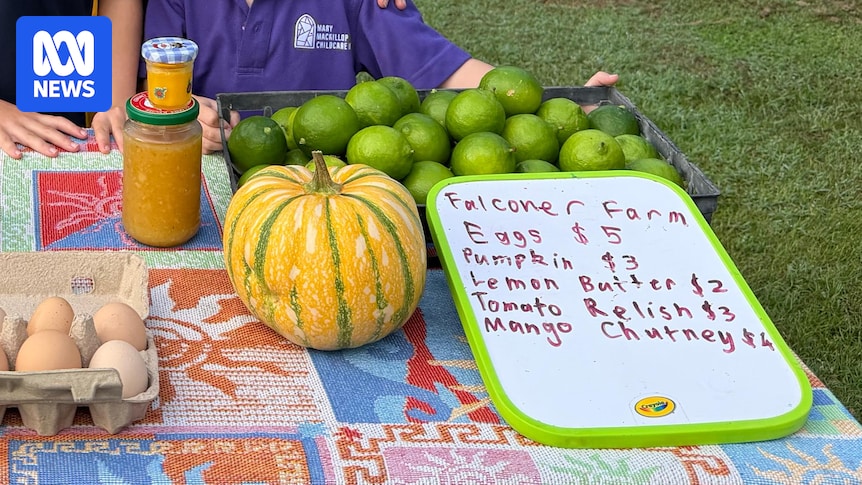 NEWS
MARY
MACKILLOP
CHILDCARE
Falconer Farm
Eggs $5
Pumpkin $3
Lemon Butter $2
Tomato Relish $3
Mango Chutney $4
Crayola